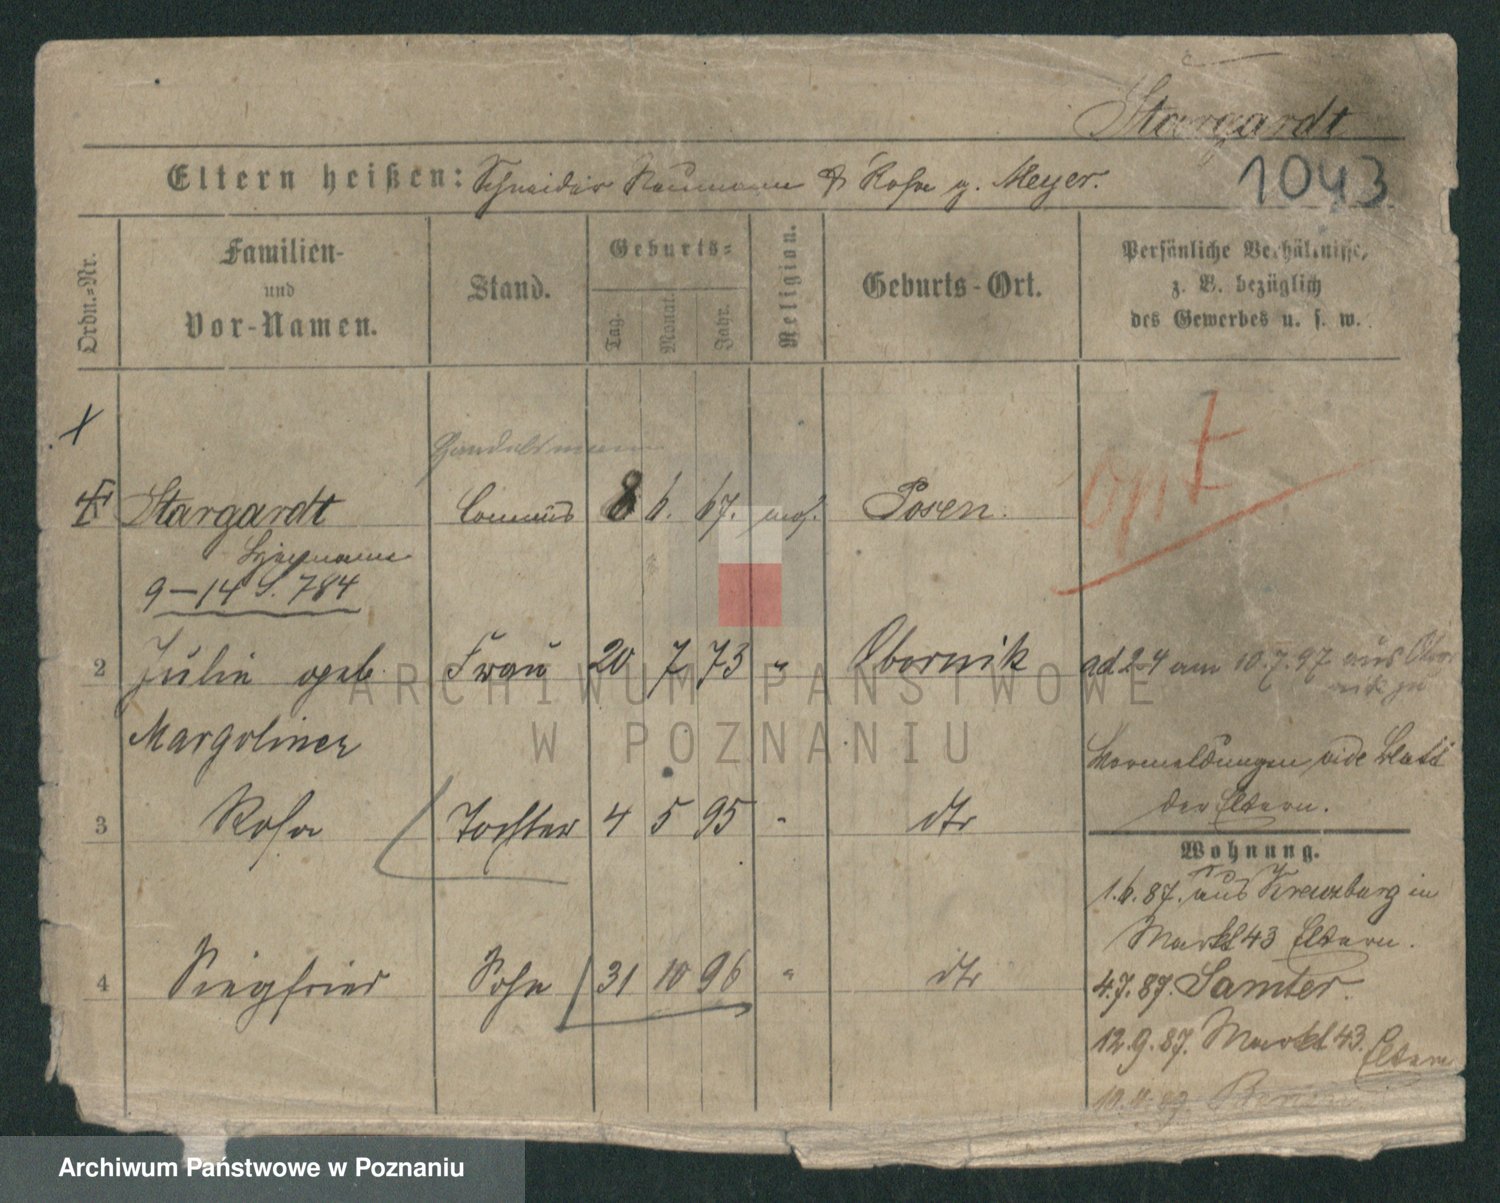 Stargardt
Eltern heißen: Schneider Naumann & Rosa g. Meyer.
1043
Ordn.-Nr.
Familien-
und
Vor-Namen.
Stand.
Geburts-
Tag.
Monat.
Jahr.
Religion.
Geburts-Ort.
Persönliche Verhältnisse,
z. B. bezüglich
des Gewerbes u. s. w.
Handelsmann
Stargardt Commis 8 6. 67. mos. Posen.
opt
9–14 S. 784
2 Julie geb. Frau 20 7 73 " Obornik
ad 2-4 am 10.7.97 aus Obor
nik zu
Margoliner
Vormeldungen vide Blatt
der Eltern.
3 Rosa Tochter 4 5 95 " dto
Wohnung.
1.6.87. aus Kreuzburg in
Markt 43 Eltern.
4 Siegfried Sohn 31 10 96 " dto
4.7.87. Samter.
12.9.87. Markt 43. Eltern
ARCHIWUM PAŃSTWOWE
W POZNANIU
Archiwum Państwowe w Poznaniu